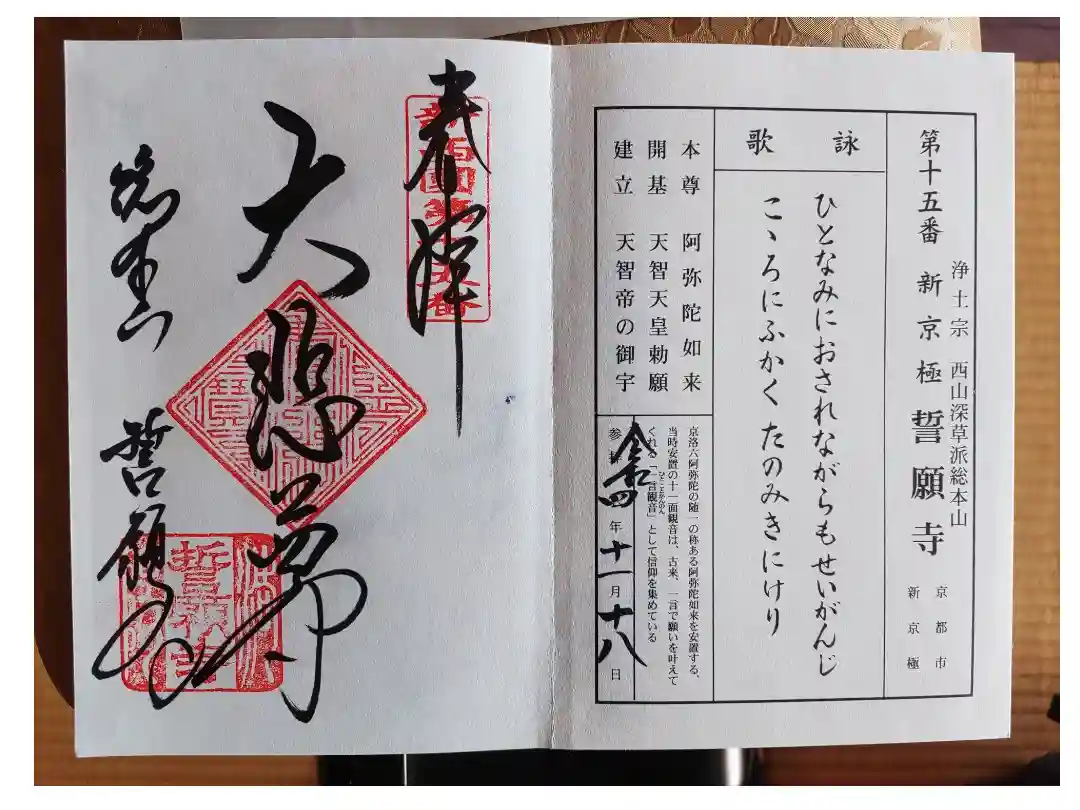 浄土宗 西山深草派総本山
第十五番 新京極 誓願寺
京都市
新京極
詠歌
ひとなみにおされながらもせいがんじ
こゝろにふかくたのみきにけり
本尊 阿弥陀如来
開基 天智天皇勅願
建立 天智帝の御宇
京洛六阿弥陀の随一の称ある阿弥陀如来を安置する、
当時安置の十一面観音は、古来、一言で願いを叶えて
ひとことかんのん
くれる「一言観音」として信仰を集めている
参拝 令和四年十一月十八日
奉拝
新西国第十五番
大悲
総本山 誓願寺
誓願寺